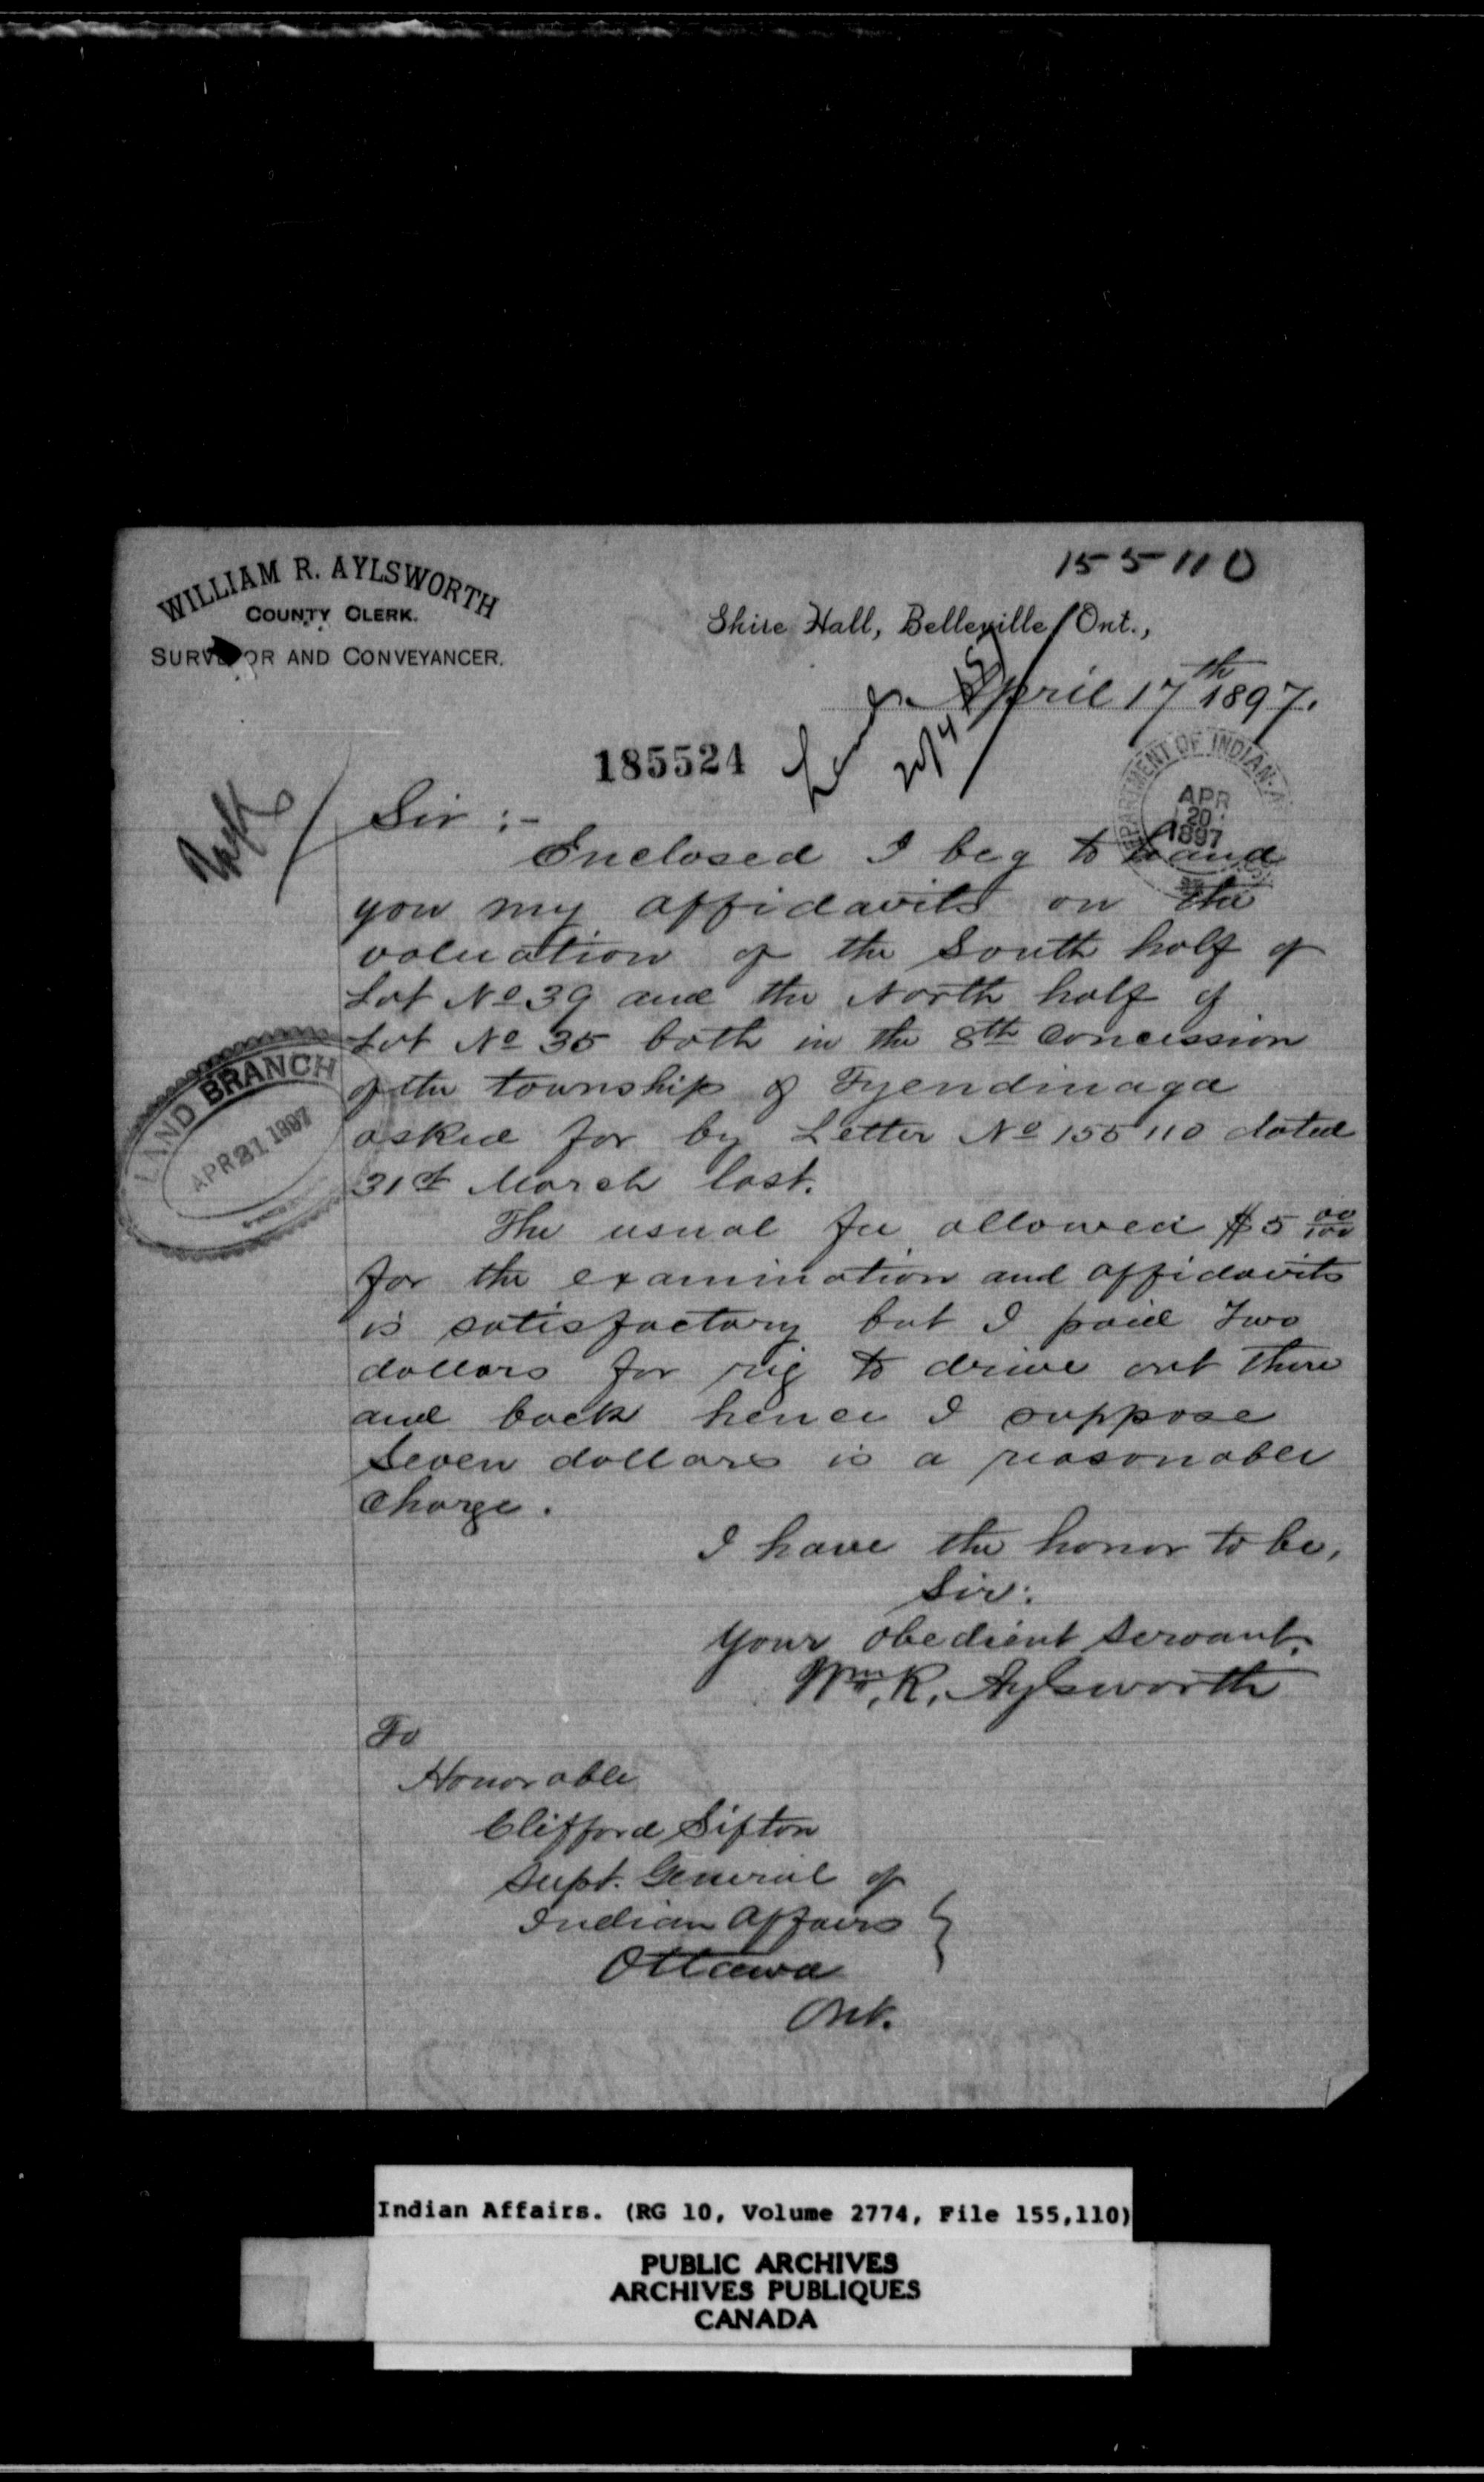 WILLIAM R. AYLSWORTH
COUNTY CLERK.
SURVEYOR AND CONVEYANCER.
155110
Shire Hall, Belleville, Ont.,
April 17th 1897.
185524
DEPARTMENT OF INDIAN
APR
20
1897
Sir :-
Enclosed I beg to hand
you my affidavits on the
valuation of the South half of
Lot No 39 and the North half of
Lot No 35 both in the 8th Concession
of the township of Tyendinaga
asked for by Letter No 155110 dated
31st March last.
LAND BRANCH
APR 21 1897
The usual fee allowed $5 00/100
for the examination and affidavits
is satisfactory but I paid Two
dollars for rig to drive out there
and back hence I suppose
Seven dollars is a reasonable
Charge.
I have the honor to be,
Sir:
Your obedient Servant.
Wm. R. Aylsworth
To
Honorable
Clifford Sifton
Supt. General of
Indian Affairs }
Ottawa
Ont.
Indian Affairs. (RG 10, Volume 2774, File 155,110)
PUBLIC ARCHIVES
ARCHIVES PUBLIQUES
CANADA